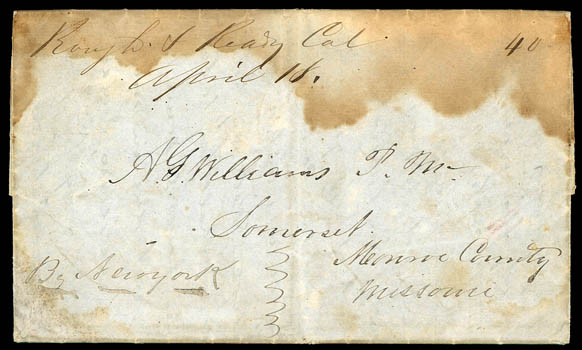 Rough & Ready Cal 40
April 18.
A G Williams P. M
Somerset
Monroe County
Missouri
By Newyork